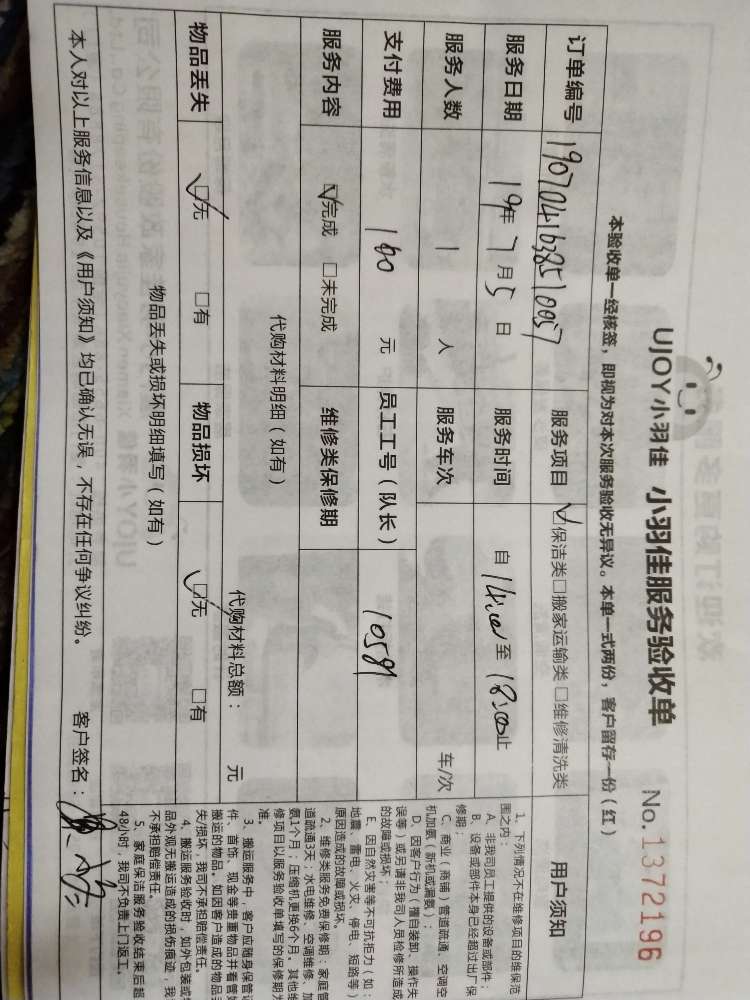 UJOY小羽佳 小羽佳服务验收单 No.1372196
本验收单一经核签，即视为对本次服务验收无异议。本单一式两份，客户留存一份（红）
订单编号 1907041638510057 服务项目 ☑保洁类□搬家运输类□维修清洗类
服务日期 19年7月5日 服务时间 自14:00至18:00止
服务人数 1 人 服务车次 车/次
支付费用 160 元 员工工号（队长） 10581
服务内容 ☑完成 □未完成 维修类保修期
代购材料明细（如有） 代购材料总额： 元
物品丢失 ☑无 □有 物品损坏 ☑无 □有
物品丢失或损坏明细填写（如有）
本人对以上服务信息以及《用户须知》均已确认无误，不存在任何争议纠纷。 客户签名：
用户须知
1、下列情况不在维修项目的维保范
围之内：
A、非我司员工提供的设备或部件；
B、设备或部件本身已经超过出厂保
修期；
C、商业（商铺）管道疏通、空调空
机加氨（新机或漏氨）；
D、因客户行为（擅自装卸、操作失
误等）或另请非我司人员检修所造成
的故障或损坏；
E、因自然灾害等不可抗拒力（如：
地震、雷电、火灾、停电、短路等）
原因造成的故障或损坏。
2、维修类服务免费保修期：家庭管
道疏通3天；水电维修、空调维修、加
氨1个月；压缩机更换6个月。其他维
修项目以服务验收单填写的保修期为
准。
3、搬运服务中，客户应随身保管证
件、首饰、现金等贵重物品并看管好
搬运的物品。如因客户造成的物品丢
失/损坏，我司不承担赔偿责任。
4、搬运服务验收时，如外包装或物
品外观无搬运造成的损伤痕迹，我司
不承担赔偿责任。
5、家庭保洁服务验收结束后超
48小时，我司不负责上门返工。